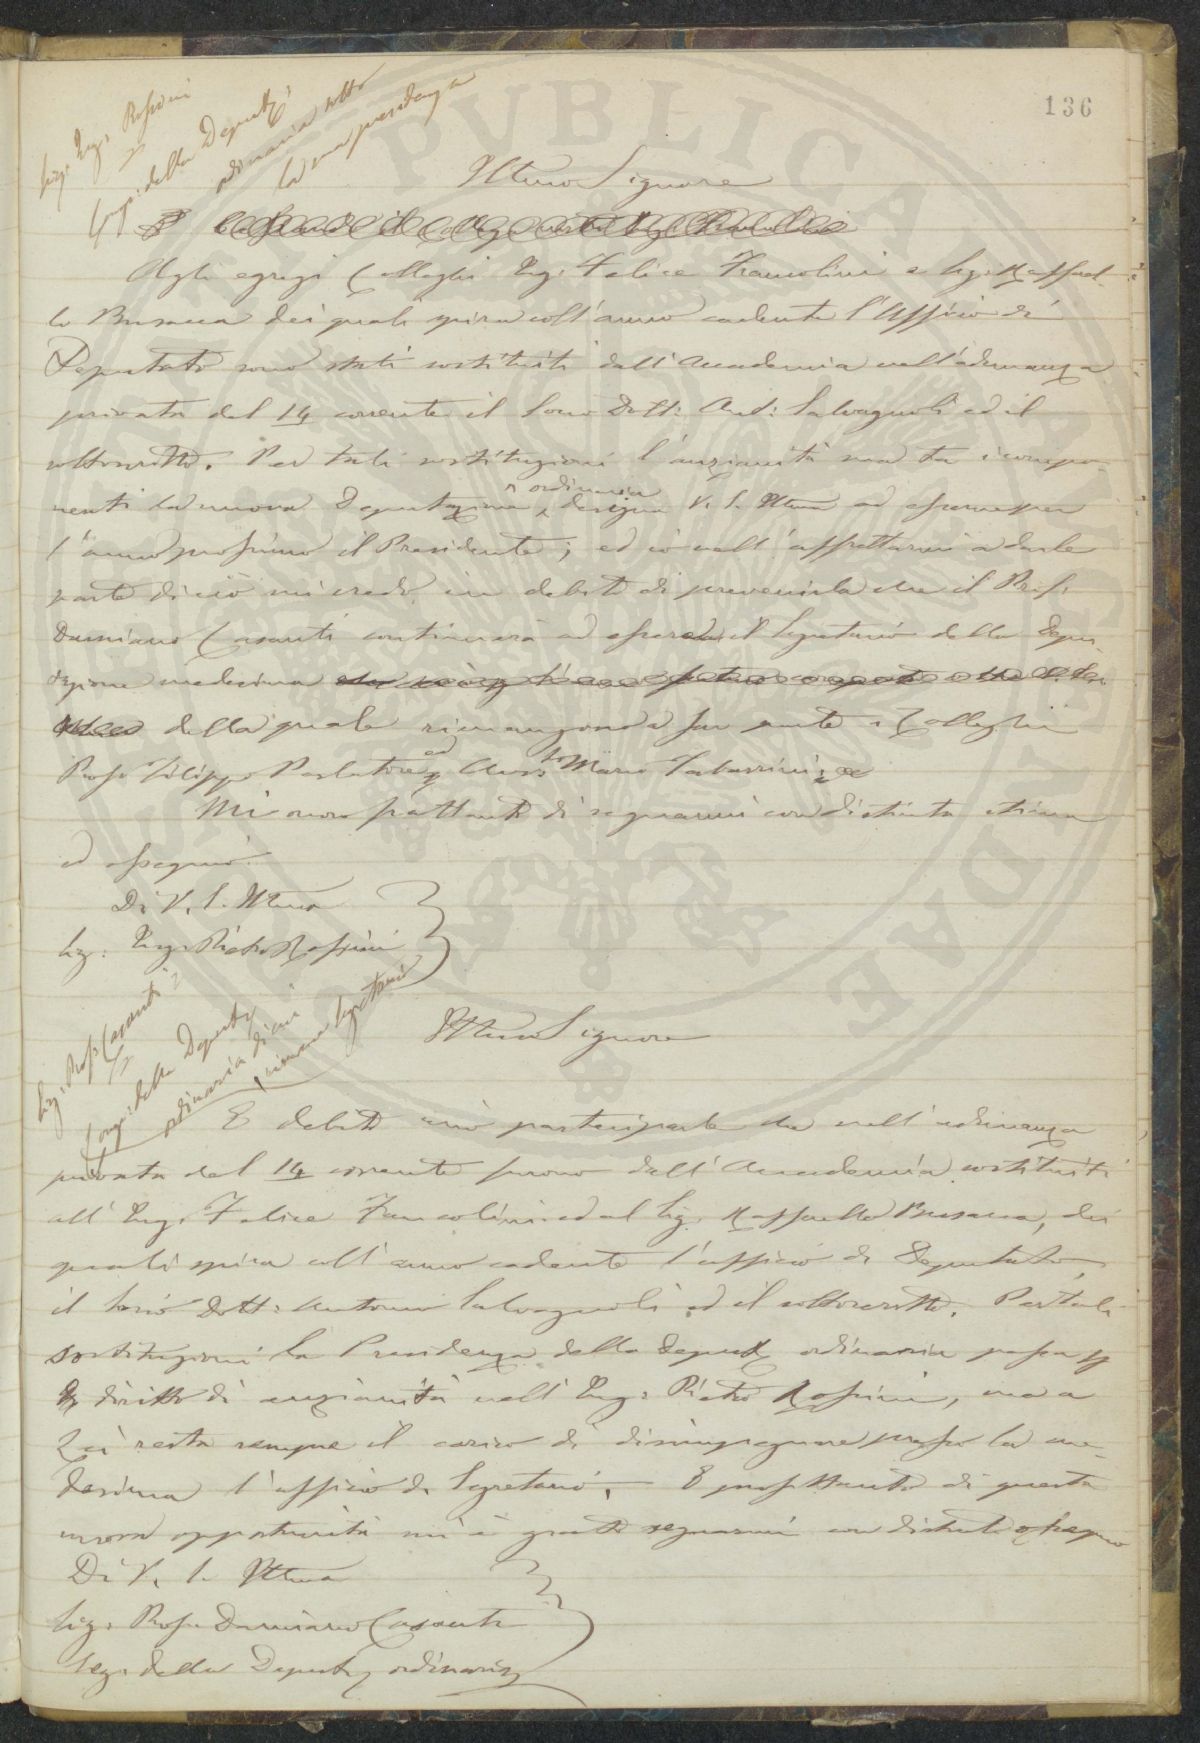 136
Sig. Ing. Rossini
Comp. della Deputaz.
ordinaria sotto
la sua presidenza
Illmo Signore
Agli egregi Colleghi Ing. Felice Francolini e Sig. Raffael-
lo Busacca dei quali spira coll'anno cadente l'Officio di
Deputato sono stati sostituiti dall'Accademia nell'adunanza
privata del 14 corrente il Socio Dott: Ant: Salvagnoli ed il
sottoscritto. Per tali sostituzioni l'anzianità sua tra i compo-
nenti la nuova Deputazione ordinaria designa V. S. Illma ad esserne per
l'anno prossimo il Presidente; ed io nell'affrettarmi a darle
parte di ciò mi credo in debito di prevenirla che il Prof.
Damiano Casanti continuerà ad essere il Segretario della Depu-
tazione medesima
della quale rimangono a far parte i Colleghi
Prof. Filippo Parlatore ed Avv. Marco Tabarrini
Mi onoro frattanto di segnarmi con distinta stima
ed ossequio
Di V. S. Illma
Sig. Ing. Pietro Rossini
Sig. Prof. Casanti
Comp. della Deputaz.
ordinaria di cui
rimane Segretario
Illmo Signore
È debito mio parteciparle che nell'adunanza
privata del 14 corrente furono dall'Accademia sostituiti
all'Ing. Felice Francolini ed al Sig. Raffaello Busacca, dei
quali spira coll'anno cadente l'ufficio di Deputato,
il Socio Dott: Antonio Salvagnoli ed il sottoscritto. Per tali
sostituzioni la Presidenza della Deputaz. ordinaria passa
diritto di anzianità nell'Ing. Pietro Rossini, ma a
Lei resta sempre il carico di disimpegnare presso la me-
desima l'ufficio di Segretario. E profittando di questa
nuova opportunità mi è grato segnarmi con distinto ossequio
Di V. S. Illma
Sig. Prof. Damiano Casanti
Seg. della Deputaz. ordinaria